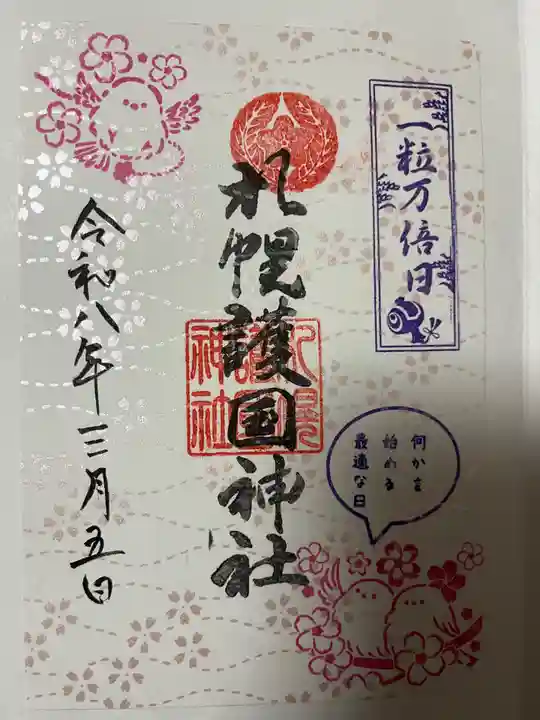 一粒万倍日
札幌護国神社
令和八年三月五日
何かを
始める
最適な日